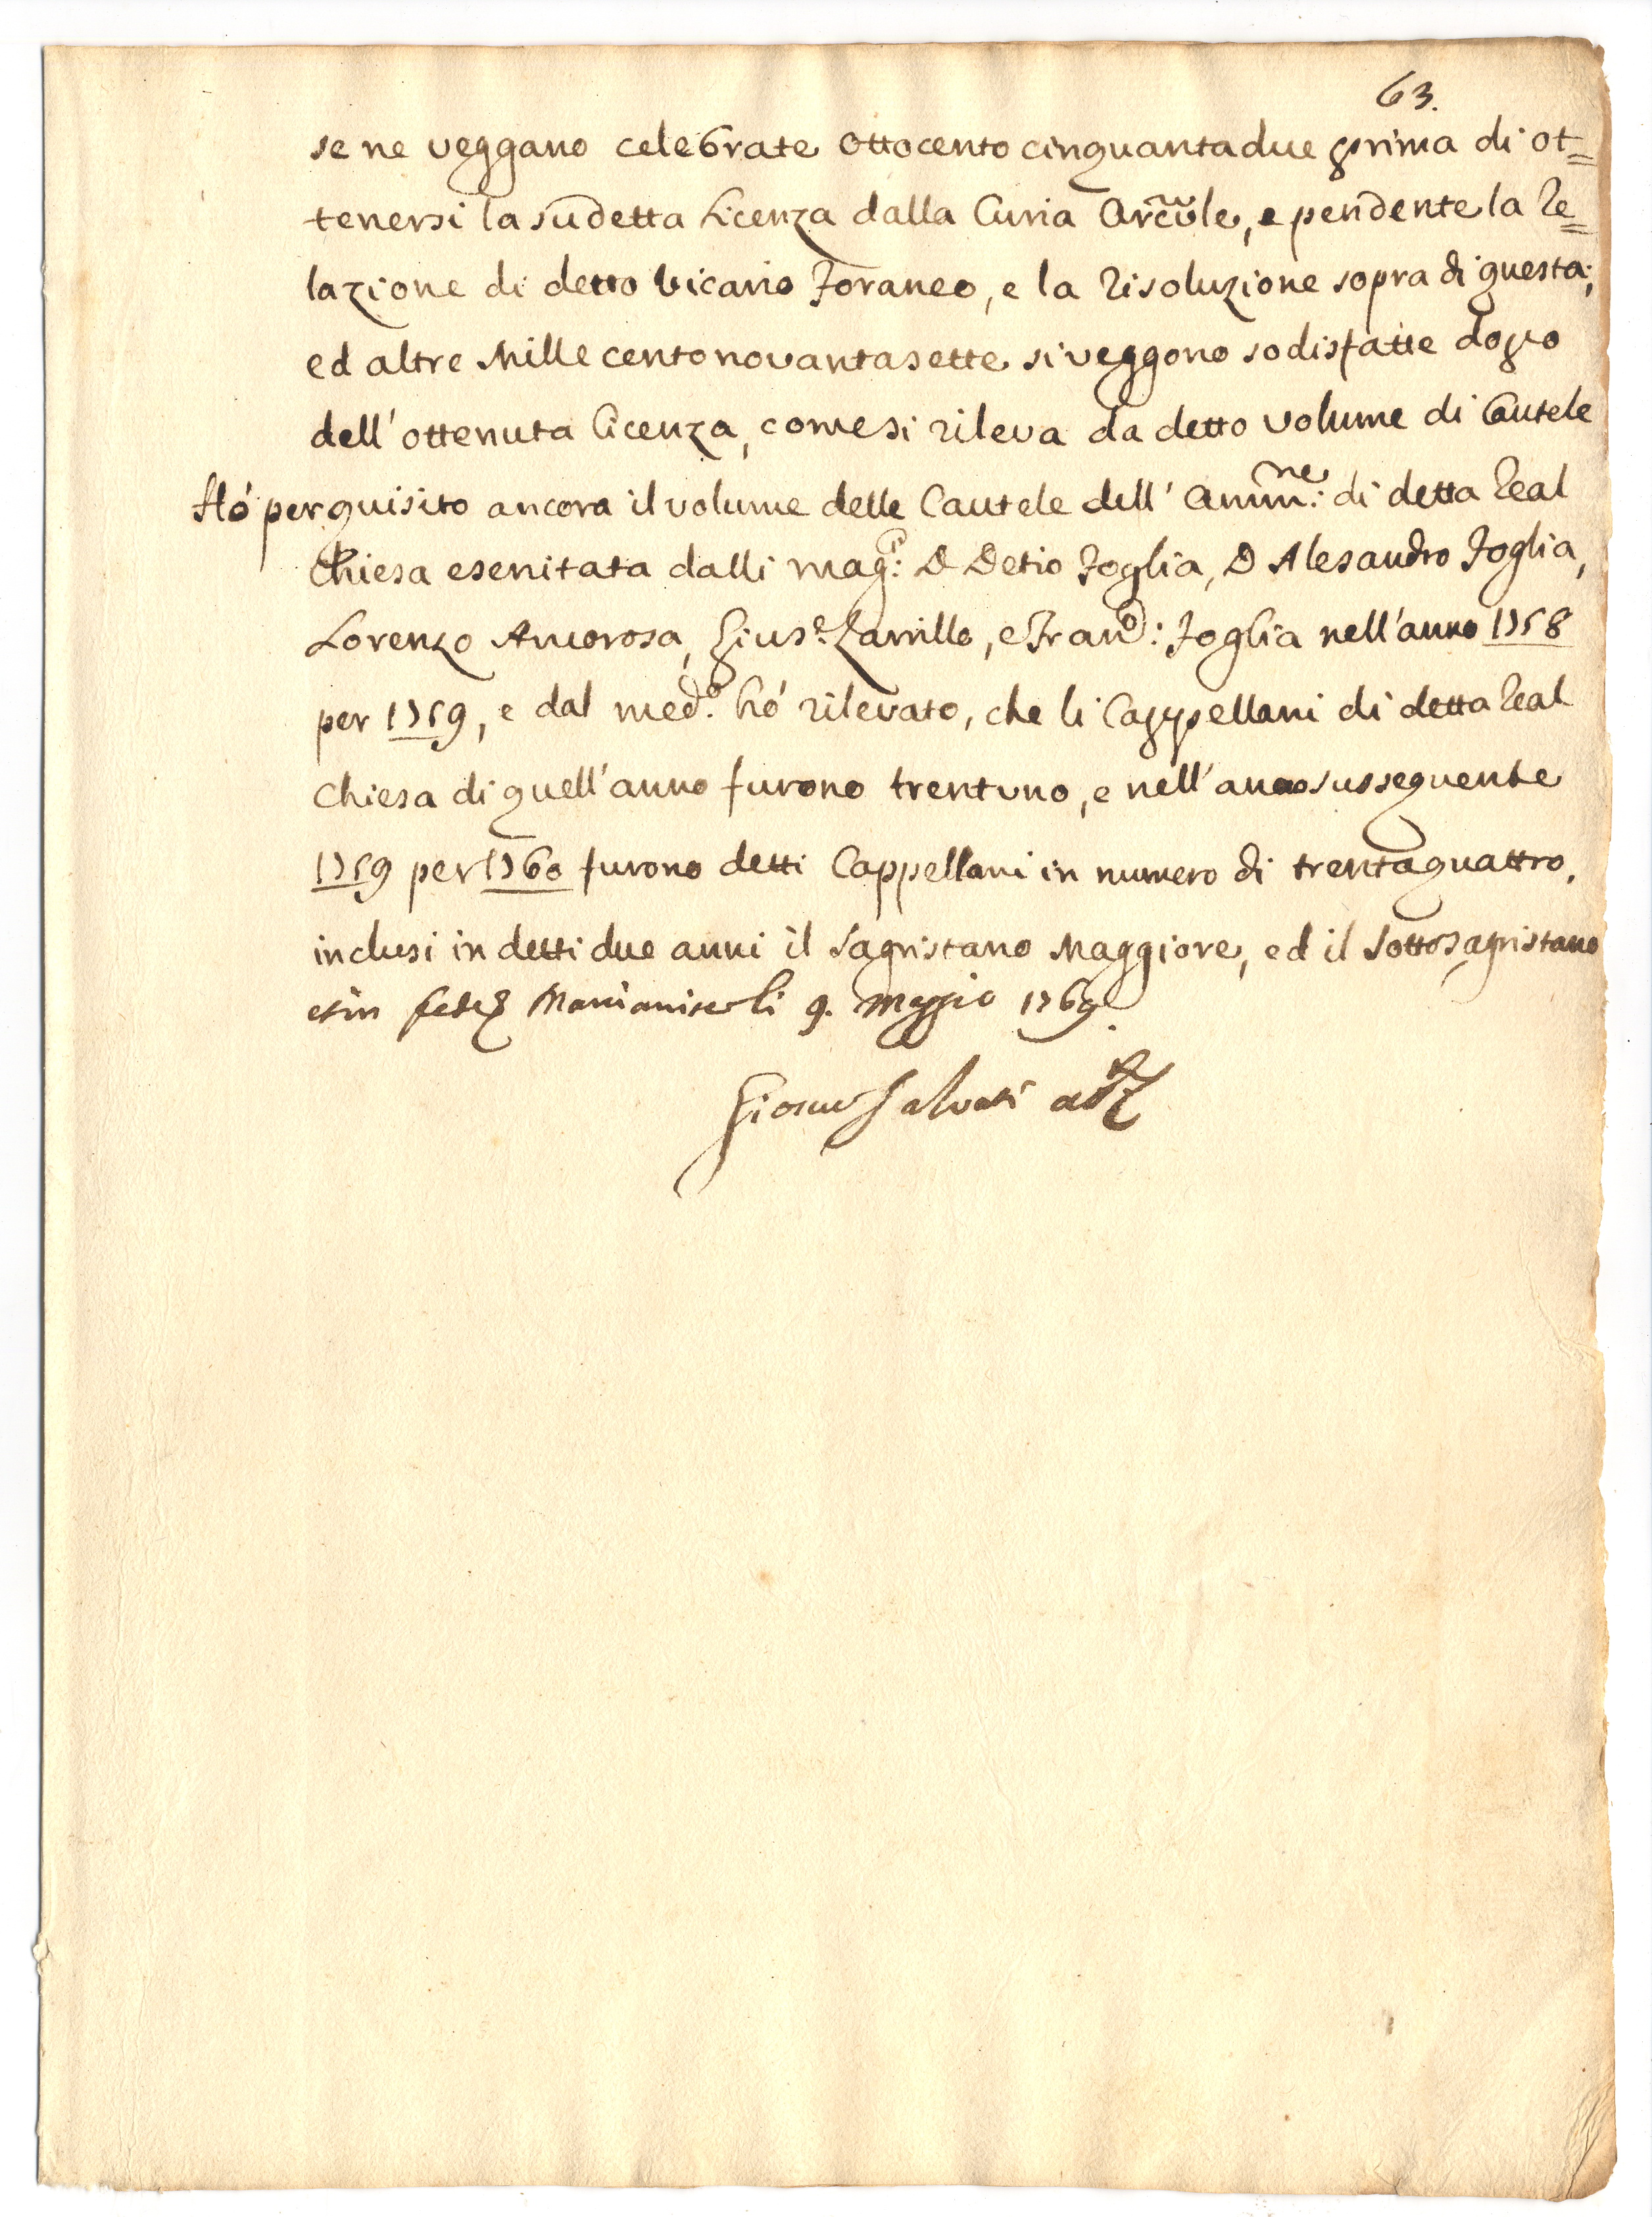 63.
se ne veggano celebrate ottocento cinquantadue prima di ot=
tenersi la sudetta Licenza dalla Curia Arcivle, e pendente la Re=
lazione di detto Vicario Foraneo, e la Risoluzione sopra di questa;
ed altre Mille cento novantasette si veggono sodisfatte dopo
dell' ottenuta licenza, come si rileva da detto volume di Cautele
Hó perquisito ancora il volume delle Cautele dell' Amm:ne di detta Real
Chiesa esercitata dalli mag:ci D Detio Foglia, D Alesandro Foglia,
Lorenzo Amorosa, Gius.e Zarrillo, e Fran:co Foglia nell' anno 1758
per 1759, e dal med.o hó rilevato, che li Cappellani di detta Real
Chiesa di quell' anno furono trentuno, e nell' anno susseguente
1759 per 1760 furono detti Cappellani in numero di trentaquattro,
inclusi in detti due anni il Sagristano Maggiore, ed il Sottosagristano
et in fede Marcianise li 9. Maggio 1769.
Salvati